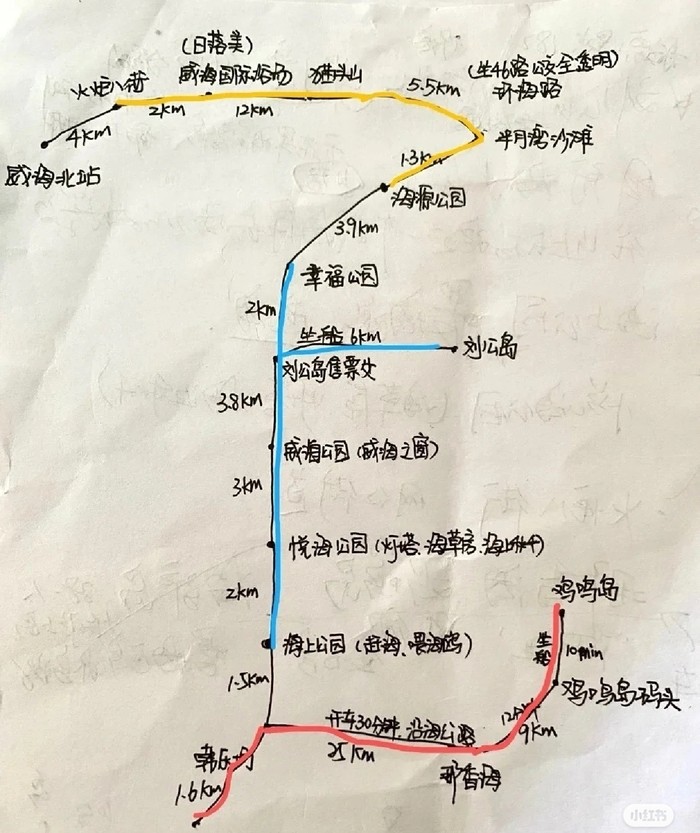 (日落美)
火炬八街
威海国际浴场
猫头山
5.5km
(坐46路公交全透明)
环海路
2km
12km
4km
威海北站
半月湾沙滩
1.3km
海源公园
3.9km
幸福公园
2km
坐船 6km
刘公岛
刘公岛售票处
3.8km
威海公园 (威海之窗)
3km
悦海公园 (灯塔、海草房、海上
2km
鸡鸣岛
海上公园 (赶海、喂海鸥)
坐船
10min
1.5km
鸡鸣岛码头
开车30分钟 沿海公路
25km
9km
那香海
韩乐坊
1.6km
小红书